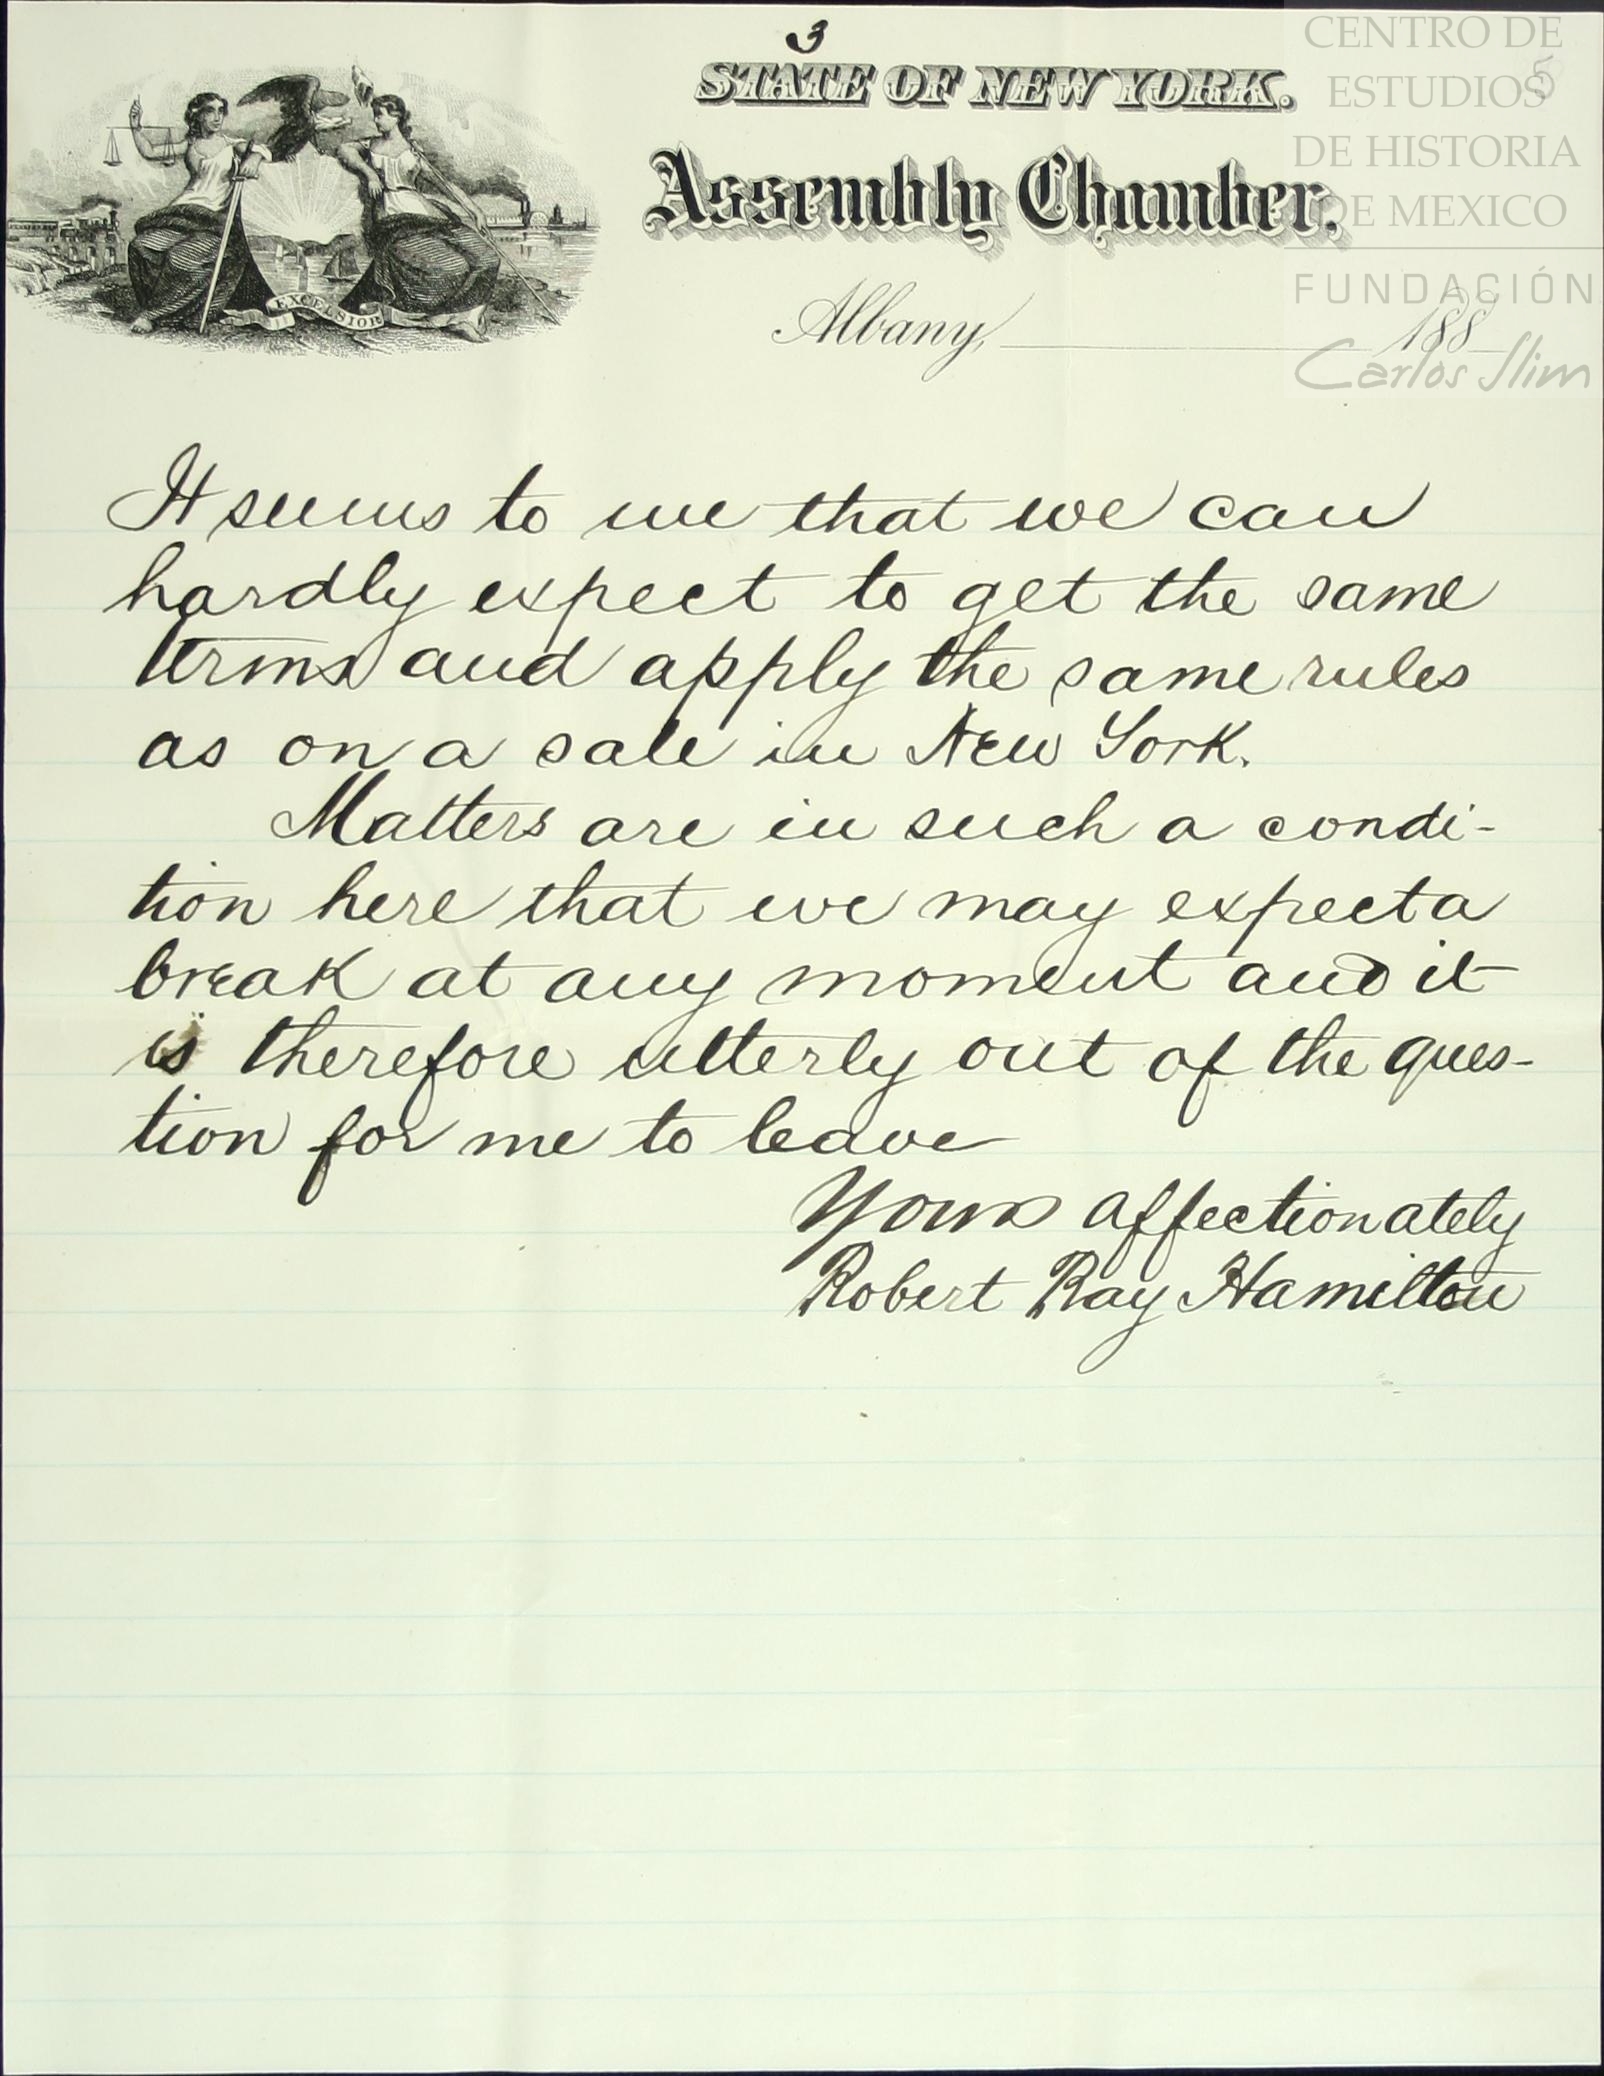 3
STATE OF NEW YORK.
Assembly Chamber.
EXCELSIOR
Albany, 188
CENTRO DE
ESTUDIOS
DE HISTORIA
DE MEXICO
FUNDACIÓN
Carlos Slim
It seems to me that we can
hardly expect to get the same
terms and apply the same rules
as on a sale in New York.
Matters are in such a condi-
tion here that we may expect a
break at any moment and it
is therefore utterly out of the ques-
tion for me to leave
Yours affectionately
Robert Ray Hamilton